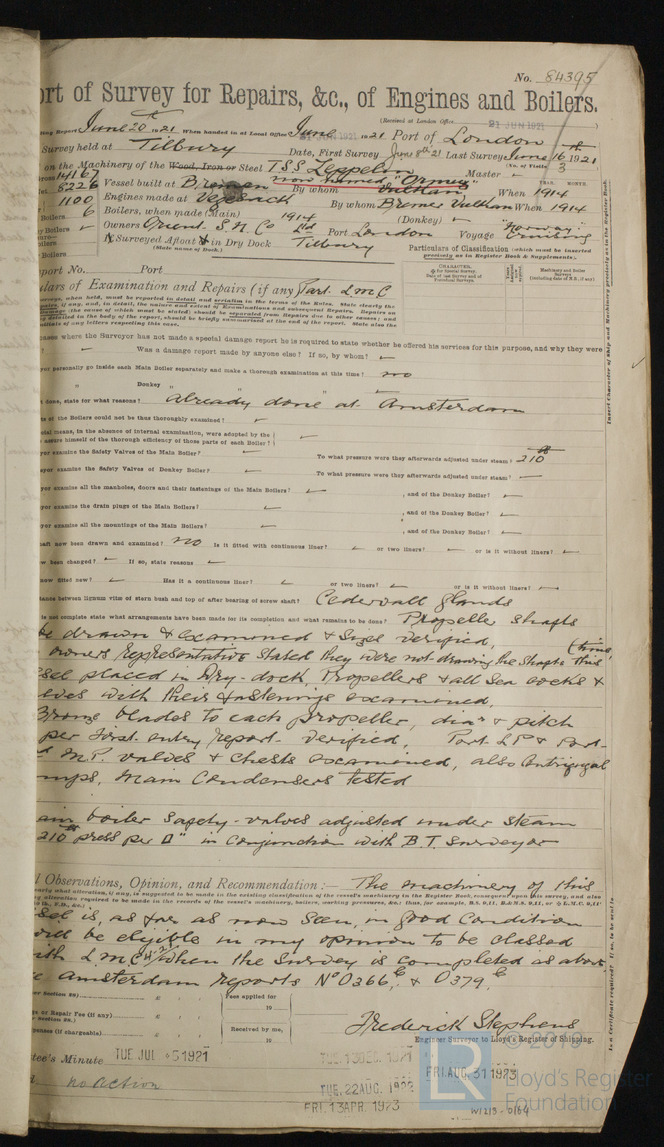 No. 84395
ort of Survey for Repairs, &c., of Engines and Boilers.
(Received at London Office 21 JUN 1921)
Report June 20th 1921 When handed in at Local Office June 1921 Port of London
Survey held at Tilbury Date, First Survey June 8th 21 Last Survey June 16th 1921
(No. of Visits 3
on the Machinery of the Wood, Iron or Steel TSS Zeppelin Master
now named "Ormuz"
14167
8226 Vessel built at Bremen By whom Vulkan When 1914
1100 Engines made at Vegesack By whom Bremer Vulkan When 1914
6 Boilers, when made (Main) 1914 (Donkey)
Owners Orient S. N. Co Ltd Port London Voyage Norway Cruising
Surveyed Afloat & in Dry Dock Tilbury
(State name of Dock.)
Particulars of Classification (which must be inserted precisely as in Register Book & Supplements).
port No. Port
lars of Examination and Repairs (if any) Part LMC
cases where the Surveyor has not made a special damage report he is required to state whether he offered his services for this purpose, and why they were
Was a damage report made by anyone else? If so, by whom?
you personally go inside each Main Boiler separately and make a thorough examination at this time? no
Donkey
done, state for what reasons? Already done at Amsterdam
of the Boilers could not be thoroughly examined?
ial means, in the absence of internal examination, were adopted by the
assure himself of the thorough efficiency of those parts of each Boiler?
you examine the Safety Valves of the Main Boiler? To what pressure were they afterwards adjusted under steam? 210 lb
you examine the Safety Valves of Donkey Boiler? To what pressure were they afterwards adjusted under steam?
you examine all the manholes, doors and their fastenings of the Main Boilers? , and of the Donkey Boiler?
you examine the drain plugs of the Main Boilers? , and of the Donkey Boiler?
you examine all the mountings of the Main Boilers? , and of the Donkey Boiler?
haft now been drawn and examined? no Is it fitted with continuous liner? or two liners? or is it without liners?
been changed? If so, state reasons
now fitted new? Has it a continuous liner? or two liners? or is it without liners?
tance between lignum vitæ of stern bush and top of after bearing of screw shaft? Cedervall glands
is not complete state what arrangements have been made for its completion and what remains to be done? Propeller shafts
be drawn & examined & size verified,
owners representative stated they were not drawing the shafts this time,
sel placed in Dry-dock, Propellers & all sea cocks &
lves with their fastenings examined.
Bronze blades to each propeller, diar & pitch
per first entry report verified, Port LP & Port
M.P. valves & chests examined, also Centrifugal
mps, Main Condensers tested
ain boiler safety-valves adjusted under steam
210 lb press per □" in conjunction with B.T. Surveyor
l Observations, Opinion, and Recommendation:— The machinery of this
sel is, as far as now seen, in good Condition
will be eligible in my opinion to be classed
with LMC 4.21 when the Survey is completed as above
Amsterdam reports No 0366 & 0379
Fees applied for
19
or Repair Fee (if any)
penses (if chargeable)
Received by me,
19
Frederick Stephens
Engineer Surveyor to Lloyd's Register of Shipping.
tee's Minute TUE JUL 5 1921
no action
TUE. 13 DEC. 1921
TUE. 22 AUG. 1922
FRI. AUG. 31 1923
FRI. 13 APR. 1923
W1213-0164
LR
© 2019
Lloyd's Register
Foundation